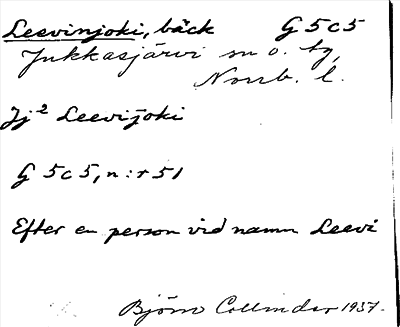 Leevinjoki, bäck G 5 c 5
Jukkasjärvi sn o. tg,
Norrb. l.
Jj² Leevijoki
G 5 c 5, n:r 51
Efter en person vid namn Leevi
Björn Collinder 1937.